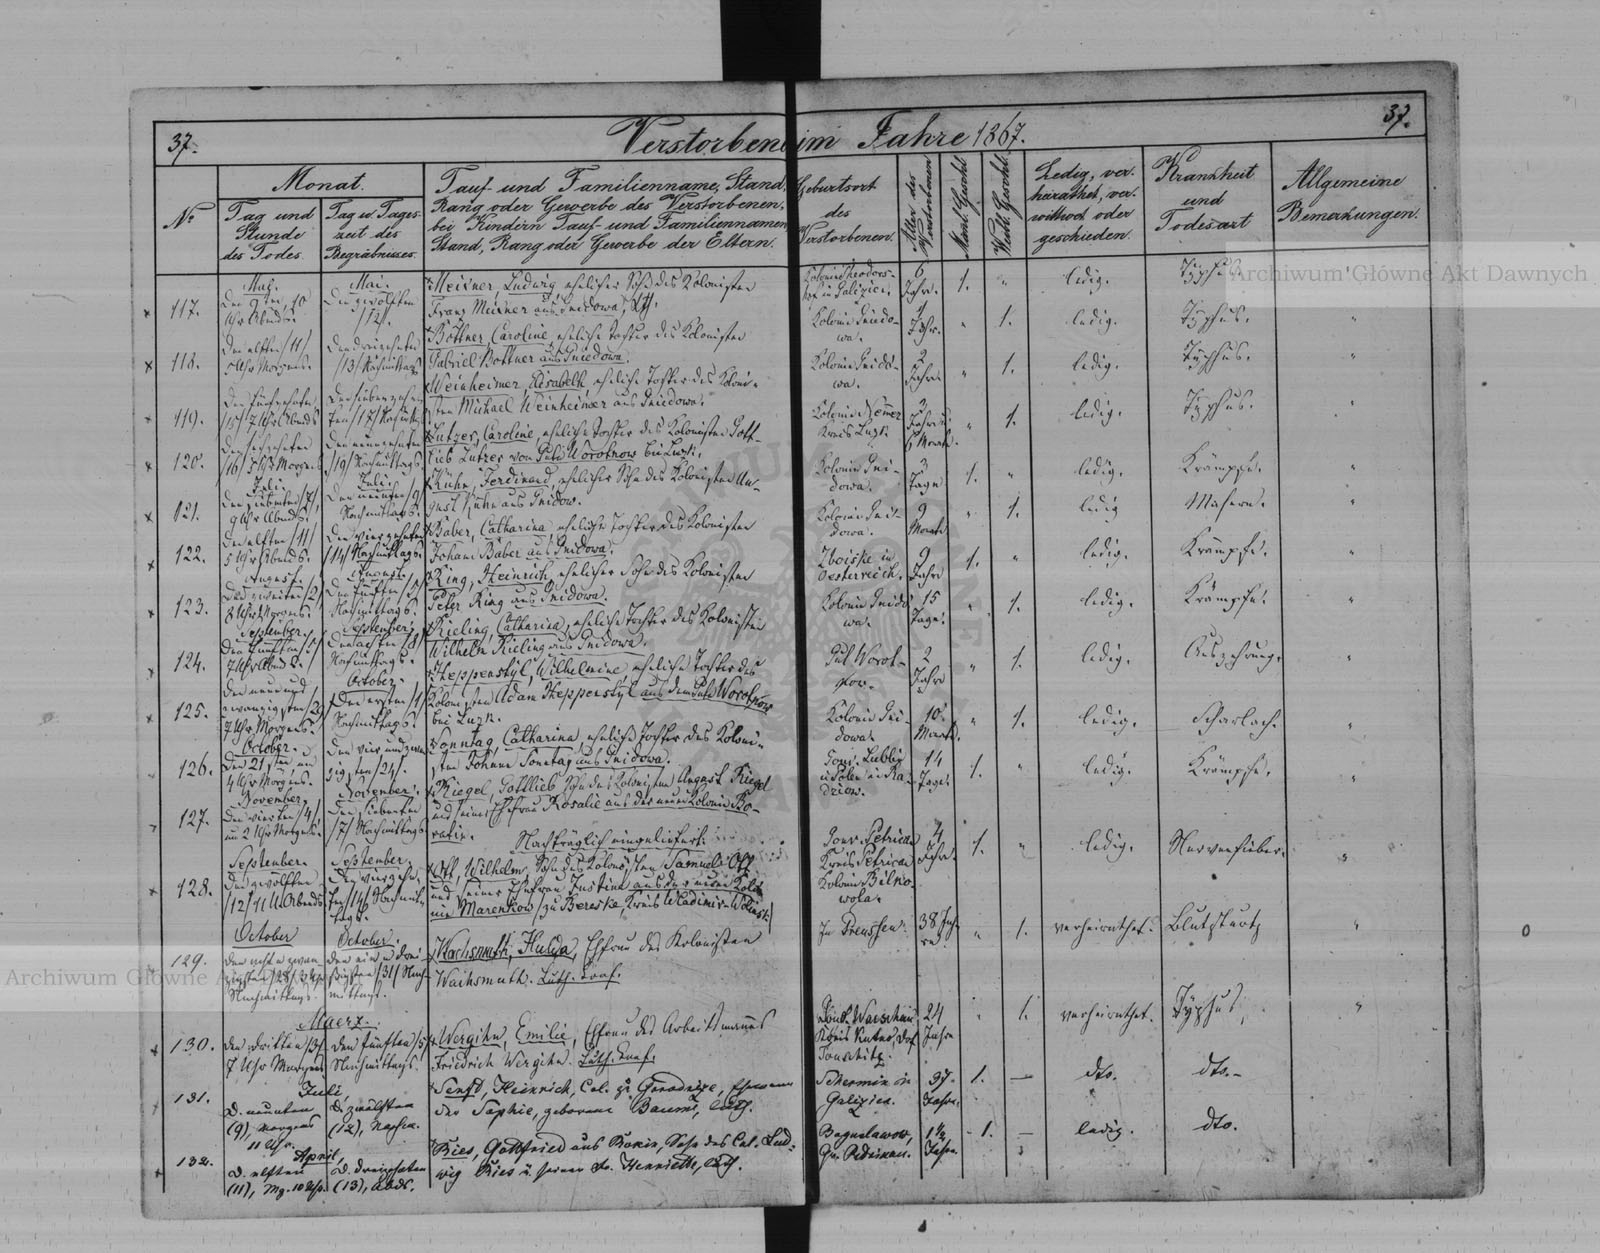 37.
Verstorbene im Jahre 1867.
37.
Nr
Monat.
Tag und Stunde des Todes.
Tag u. Tageszeit des Begräbnisses.
Tauf- und Familienname, Stand,
Rang oder Gewerbe des Verstorbenen,
bei Kindern Tauf- und Familiennamen
Stand, Rang oder Gewerbe der Eltern.
Geburtsort
des
Verstorbenen.
Alter des Verstorbenen
Mänl. Geschl.
Weibl. Geschl.
Ledig, ver-
heirathet, ver-
wittwet oder
geschieden.
Krankheit
und
Todesart
Allgemeine
Bemerkungen.
Archiwum Główne Akt Dawnych
117.
Mai.
Den 9ten, 10
Uhr Abends.
Mai.
Den zwölften
/12/.
Meisner, Ludwig, ehelicher Sohn des Kolonisten
Franz Meisner aus Gnidowa,
Kolonie Theodors-
hof in Galizien.
6
Jahr.
1.
"
ledig.
Typhus.
118.
Den elften /11/
Uhr Morgens.
Den dreizehnten
/13/ Nachmittags
Böttner, Caroline, eheliche Tochter des Kolonisten
Gabriel Böttner aus Gniedowa.
Kolonie Gniedo-
wa.
Jahr.
"
1.
ledig.
Typhus.
"
119.
Den fünfzehnten
/15/ 7 Uhr Abends
Den siebenzehn-
ten /17/
Weinheimer, Elisabeth, eheliche Tochter des Koloni-
sten Michael Weinheimer aus Gniedowa.
Kolonie Gnido-
wa.
2
Jahre
"
1.
ledig.
Typhus.
"
120.
Den sechzehnten
/16/ 5 Uhr Morgens
Den neunzehnten
/19/ Nachmittags.
Lutzer, Caroline, eheliche Tochter des Kolonisten Gott-
lieb Lutzer von Gute Worotnow bei Luzk.
Kolonie
Kreis Luzk.
6 Monate.
"
1.
ledig.
Typhus.
121.
Juli.
Den siebenten /7/,
9 Uhr Abends.
Juli.
Den neunten /9/
Nachmittags.
Kühn, Ferdinand, ehelicher Sohn des Kolonisten Au-
gust Kühn aus Gnidow.
Kolonie Gni-
dowa.
3
Tage
1.
"
ledig.
Krämpfe.
"
122.
Den elften /11/
5 Uhr Abends.
Den vierzehnten
/14/ Nachmittags.
Baber, Catharina, eheliche Tochter des Kolonisten
Johann Baber aus Gnidowa.
Kolonie Gni-
dowa.
9
Monate
"
1.
ledig
Masern.
"
123.
August.
Den zweiten /2/
8 Uhr Morgens.
August.
Den fünften /5/
Nachmittags.
Ring, Heinrich, ehelicher Sohn des Kolonisten
Peter Ring aus Gnidowa.
Zboiske in
Oesterreich.
9
Jahre
1.
"
ledig.
Krämpfe.
"
124.
September.
Den fünften /5/
7 Uhr Abends.
September.
Den achten /8/
Nachmittags.
Rieling, Catharina, eheliche Tochter des Kolonisten
Wilhelm Rieling aus Gnidowa.
Kolonie Gnido-
wa.
15
Tage.
"
1.
ledig.
Krämpfe.
"
125.
Den neun und
zwanzigsten /29/
7 Uhr Morgens.
October.
Den ersten /1/
Nachmittags.
Heppenstyl, Wilhelmine, eheliche Tochter des
Kolonisten Adam Heppenstyl aus dem Gute Worotnow
bei Luzk.
Gut Worot-
now.
2
Jahre
"
1.
ledig.
Auszehrung.
"
126.
October.
Den 21sten um
4 Uhr Morgens.
Den vier und zwan-
zigsten /24/.
Sonntag, Catharina, eheliche Tochter des Koloni-
sten Johann Sonntag aus Gnidowa.
Kolonie Gni-
dowa.
10
Monate.
"
1.
ledig.
Scharlach.
"
127.
November.
Den vierten /4/,
um 2 Uhr Morgens.
November.
Den siebenten
/7/ Nachmittags
Riegel, Gottlieb, Sohn des Kolonisten August Riegel
und seiner Ehefrau Rosalie aus der neuen Kolonie Bo-
ratin.
Gouv. Lublin
in Polen in Ra-
dziow.
14
Tage.
1.
ledig.
Krämpfe.
"
Nachträglich eingeliefert:
128.
September.
Den zwölften
/12/ 11 U. Abends
September.
Den vierzehn-
ten /14/ Nachmit-
tags.
Ott, Wilhelm, Sohn des Kolonisten Samuel Ott
und seiner Ehefrau Justine aus der neuen Kolo-
nie Marenkow /zu Bereske, Kreis Wladimir-Wolinsk/
Gouv. Petrican
Kreis Petrican
Kolonie Bilko-
wola.
4
Jahr.
1.
"
ledig.
Nervenfieber.
"
129.
October
October
Nachmittags.
Den ein u. drei-
ßigsten /31/ Nach-
mittags.
Wachsmuth, Hulda, Ehefrau des Kolonisten
Wachsmuth. Luth. Conf.
In Preussen.
38 Jah-
re
"
1.
verheirathet.
Blutsturtz
"
130.
Maerz.
Den dritten /3/
7 Uhr Morgens
Den fünften /5/
Nachmittags.
Wergihn, Emilie, Ehefrau des Arbeitsmannes
Friedrich Wergihn. Luth. Conf.
Gouv. Warschau
Kreis Kutno, Dorf
24
Jahre
1.
verheirathet.
Typhus,
"
131.
Juli,
D. neunten
(9), morgens
11 Uhr.
D. zwölften
(12), Nachm.
Senft, Heinrich, Col. zu Gorodnize, Ehemann
der Sophie, geborene Baum, luth.
Schermin in
Galizien.
37.
Jahre.
1.
—
dto.
dto.-
132.
April,
D. elften
(11), Mg. 10 Uhr.
D. dreizehnten
(13), Abds.
Ries, Gottfried aus Rokin, Sohn des Col. Lud-
wig Ries u. seiner Fr. Henriette, luth.
Boguslawow,
1½
Jahre.
1.
—
ledig.
dto.
Archiwum Główne Akt Dawnych